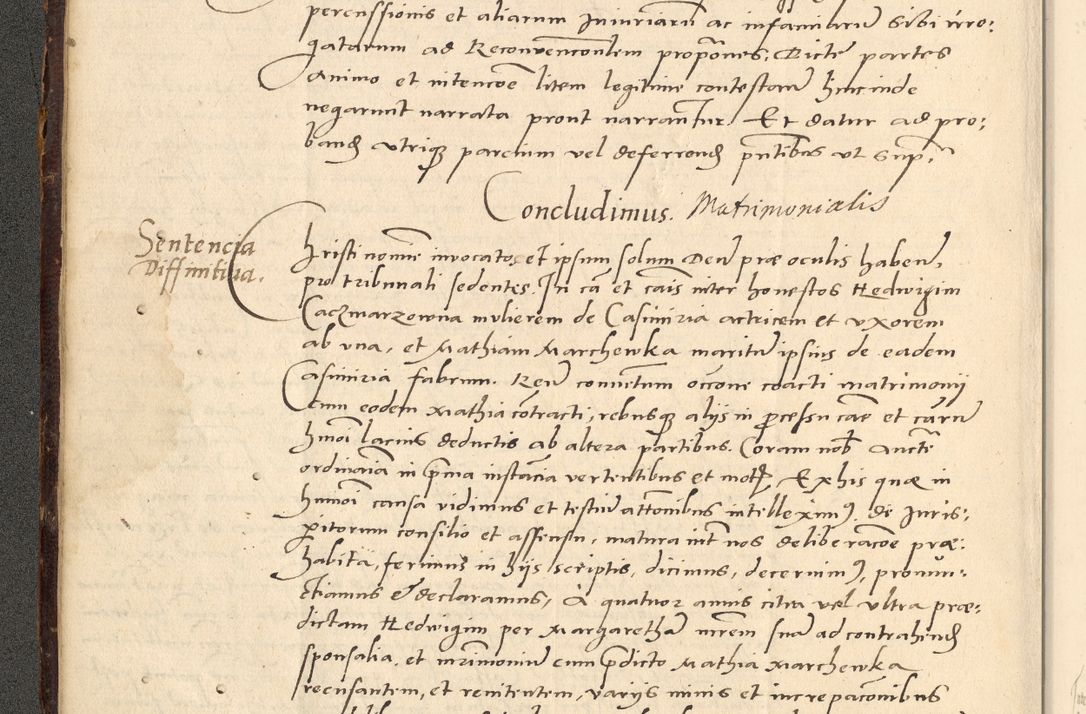 percussionis et aliarum Iniuriarũ ac infamiarũ sibi irro:
gatarum ad Reconvenconem propones. Dicte partes
animo et intencoe litem legitime contestarũ hincinde
negarunt narrata prout narrantur. Et datur ad pro:
band vtriqʒ parcium vel deferrend pntibus vt sup.
Concludimus. Matrimonialis
Sentencia
Diffinitiua.
Christi nomine invocato, et ipsum solum Deũ præ oculis habeñ,
pro tribunali sedentes. In cã et cais inter honestos Hedwigim
Caczmarzowna mulierem de Casimiria actricem et vxorem
ab vna, et Mathiam Marchewka maritũ ipsius de eadem
Casimiria fabrum. Reũ conventum occone coacti matrimonij
cum eodem Mathia contracti, rebusqʒ alijs in processu cae et carũ
hmoi lacius deductis ab altera partibus. Coram nob Aucte
ordinaia in prima instãcia vertentibus et mot, Ex his quæ in
hmoi causa vidimus et testiũ attonibus intelleximꝰ, de Iuris:
peritorum consilio et assensu, matura int nos deliberacoe præ:
habita, ferimus in hijs scriptis, dicimus, decernimꝰ, pronun:
ctiamus & declaramus, A quatuor annis citra vel ultra præ:
dictam Hedwigim per Margarethã mrem suã ad contrahend
sponsalia, et mrimoniũ cum prædicto Mathia Marchewka
recusantem, et renitentem, varijs minis et increpaconibus